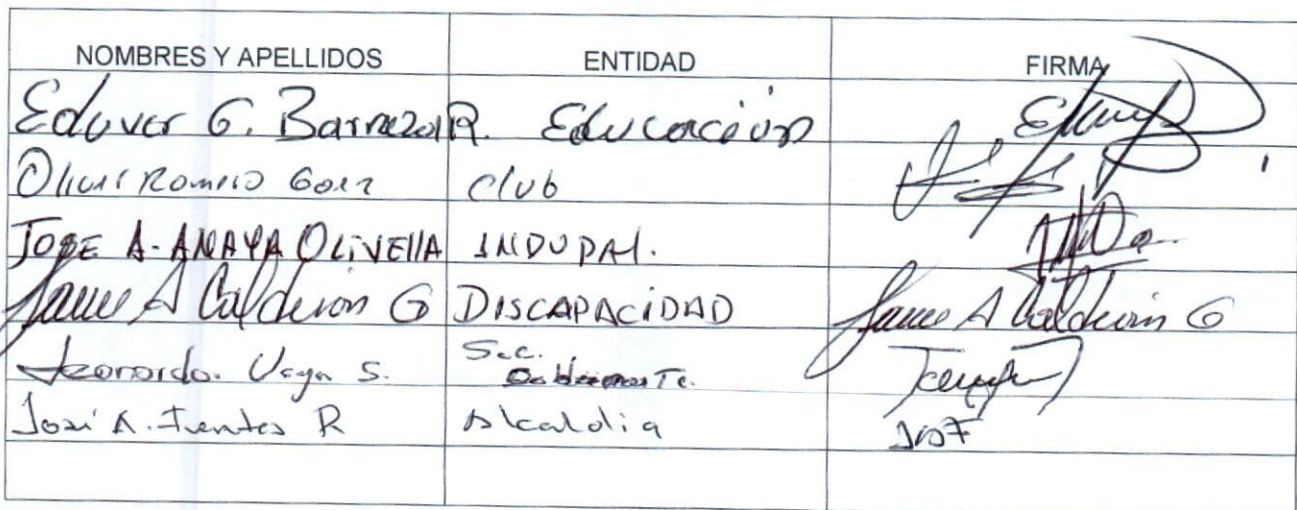 NOMBRES Y APELLIDOS ENTIDAD FIRMA
Eduver G. Barraza R. Educación
Romero Club
JOSE A. ANAYA OLIVELLA INDUPAL.
Jaime A Calderón G DISCAPACIDAD Jaime A Calderón G
Leonardo. Vega S. Sec.
José A. Fuentes R Alcaldia